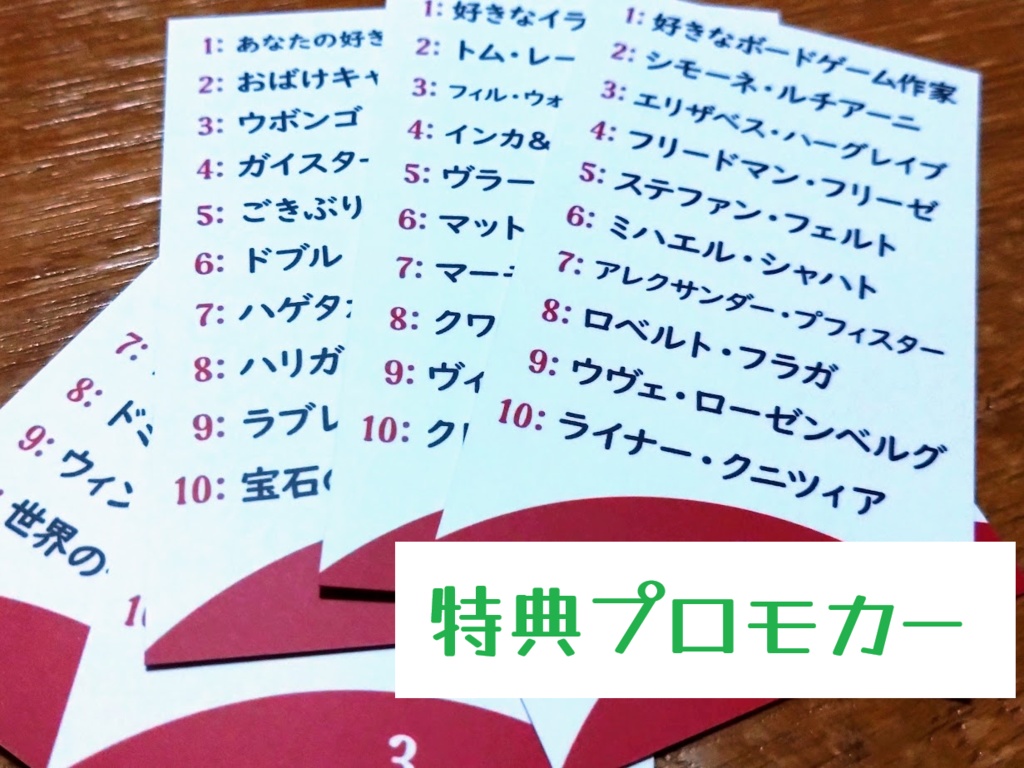 1: 好きなボードゲーム作家
2: シモーネ・ルチアーニ
3: エリザベス・ハーグレイブ
4: フリードマン・フリーゼ
5: ステファン・フェルト
6: ミハエル・シャハト
7: アレクサンダー・プフィスター
8: ロベルト・フラガ
9: ウヴェ・ローゼンベルグ
10: ライナー・クニツィア
1: 好きなイラ
2: トム・レー
3: フィル・ウォ
4: インカ&
5: ヴラー
6: マット
7: マー
8: クワ
9: ヴィ
10: ク
1: あなたの好き
2: おばけキャ
3: ウボンゴ
4: ガイスター
5: ごきぶり
6: ドブル
7: ハゲタ
8: ハリガ
9: ラブレ
10: 宝石の
7:
8: ド
9: ウィン
世界の
10
3
特典プロモカー